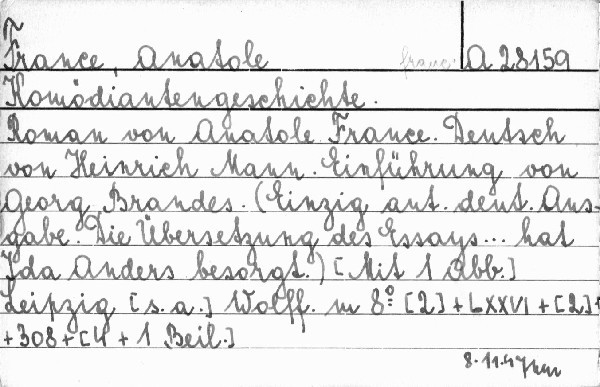 France, Anatole franc. A 28159
Komödiantengeschichte.
Roman von Anatole France. Deutsch
von Heinrich Mann. Einführung von
Georg Brandes. (Einzig aut. deut. Aus-
gabe. Die Übersetzung des Essays... hat
Ida Anders besorgt.) [Mit 1 Abb.]
Leipzig [s.a.] Wolff. m 8º [2] + LXXVI + [2] +
+ 308 + [4 + 1 Beil.]
8.11.47